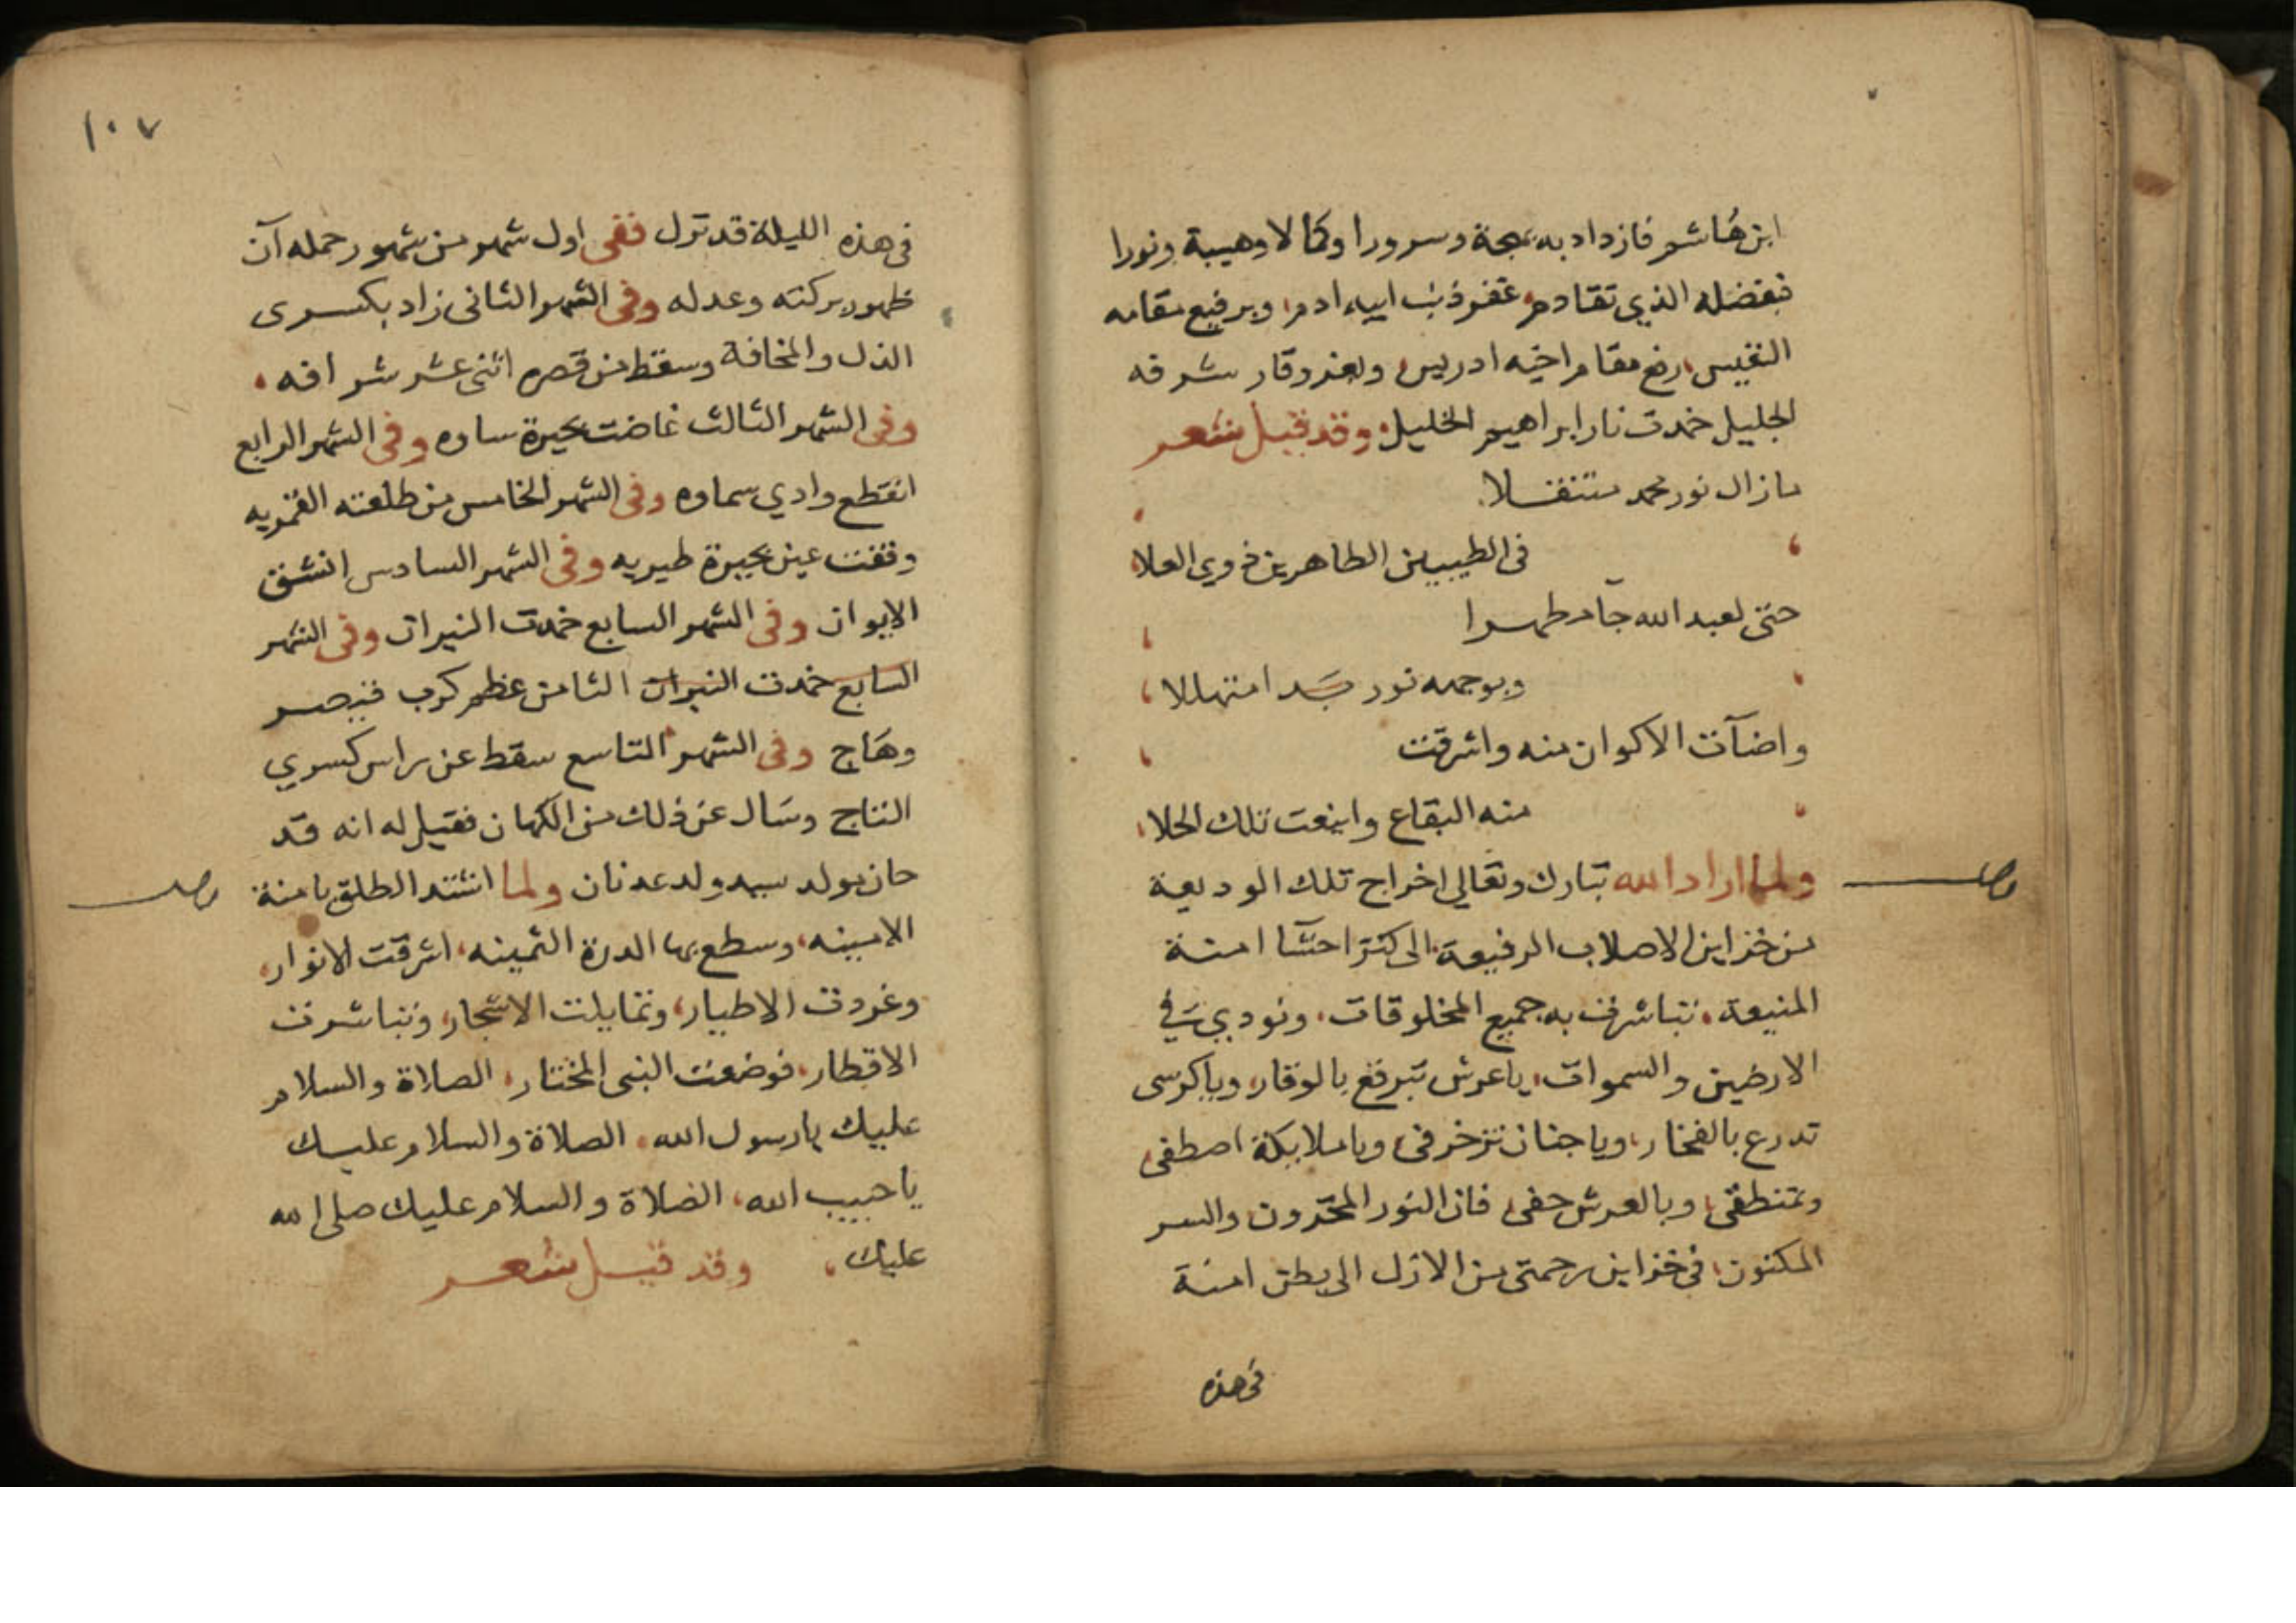 ابن هاشم فازداد به بهجة وسرورا وكمالا وهيبة ونورا
فبفضله الذي تقادم غفر ذنب ابيه ادم وبرفيع مقامه
النفيس رفع مقام اخيه ادريس وبعز وقار شرفه
الجليل خمدت نار ابراهيم الخليل وقد قيل شعر
ما زال نور محمد متنقلا
فى الطيبين الطاهرين ذوي العلا
حتى لعبد الله جآ مطهرا
وبوجهه نور بدا متهللا
واضآت الاكوان منه واشرقت
منه البقاع واينعت تلك الحلا
ولما اراد الله تبارك وتعالى اخراج تلك الوديعة
من خزاين الاصلاب الرفيعة الى كنز احشا امنة
المنيعة تباشرت به جميع المخلوقات ونودي في
الارضين والسموات ياعرش تبرقع بالوقار وياكرسى
تدرع بالفخار وياجنان تزخرفى وياملايكة اصطفى
وتمنطقى وبالعرش حفى فان النور المخزون والسر
المكنون فى خزاين رحمتى من الازل الى بطن امنة
فى هذه
١٠٧
فى هذه الليلة قد نزل ففى اول شهر من شهور حمله آن
ظهور بركته وعدله وفى الشهر الثانى زاد بكسرى
الذل والمخافة وسقط من قصره اثنى عشر شرافه
وفى الشهر الثالث غاضت بحيرة ساوه وفى الشهر الرابع
انقطع وادي سماوه وفى الشهر الخامس من طلعته القمريه
وقفت عين بحيرة طبريه وفى الشهر السادس انشق
الايوان وفى الشهر السابع خمدت النيران وفى الشهر
السابع خمدت النيران الثامن عظم كرب قيصر
وهاج وفى الشهر التاسع سقط عن راس كسري
التاج وسال عن ذلك من الكهان فقيل له انه قد
حان مولد سيد ولد عدنان ولما اشتد الطلق بامنة
الامينه وسطع بها الدرة الثمينه اشرقت الانوار
وغردت الاطيار وتمايلت الاشجار وتباشرت
الاقطار فوضعت النبى المختار الصلاة والسلام
عليك يارسول الله الصلاة والسلام عليك
ياحبيب الله الصلاة والسلام عليك صلى الله
عليك وقد قيل شعر